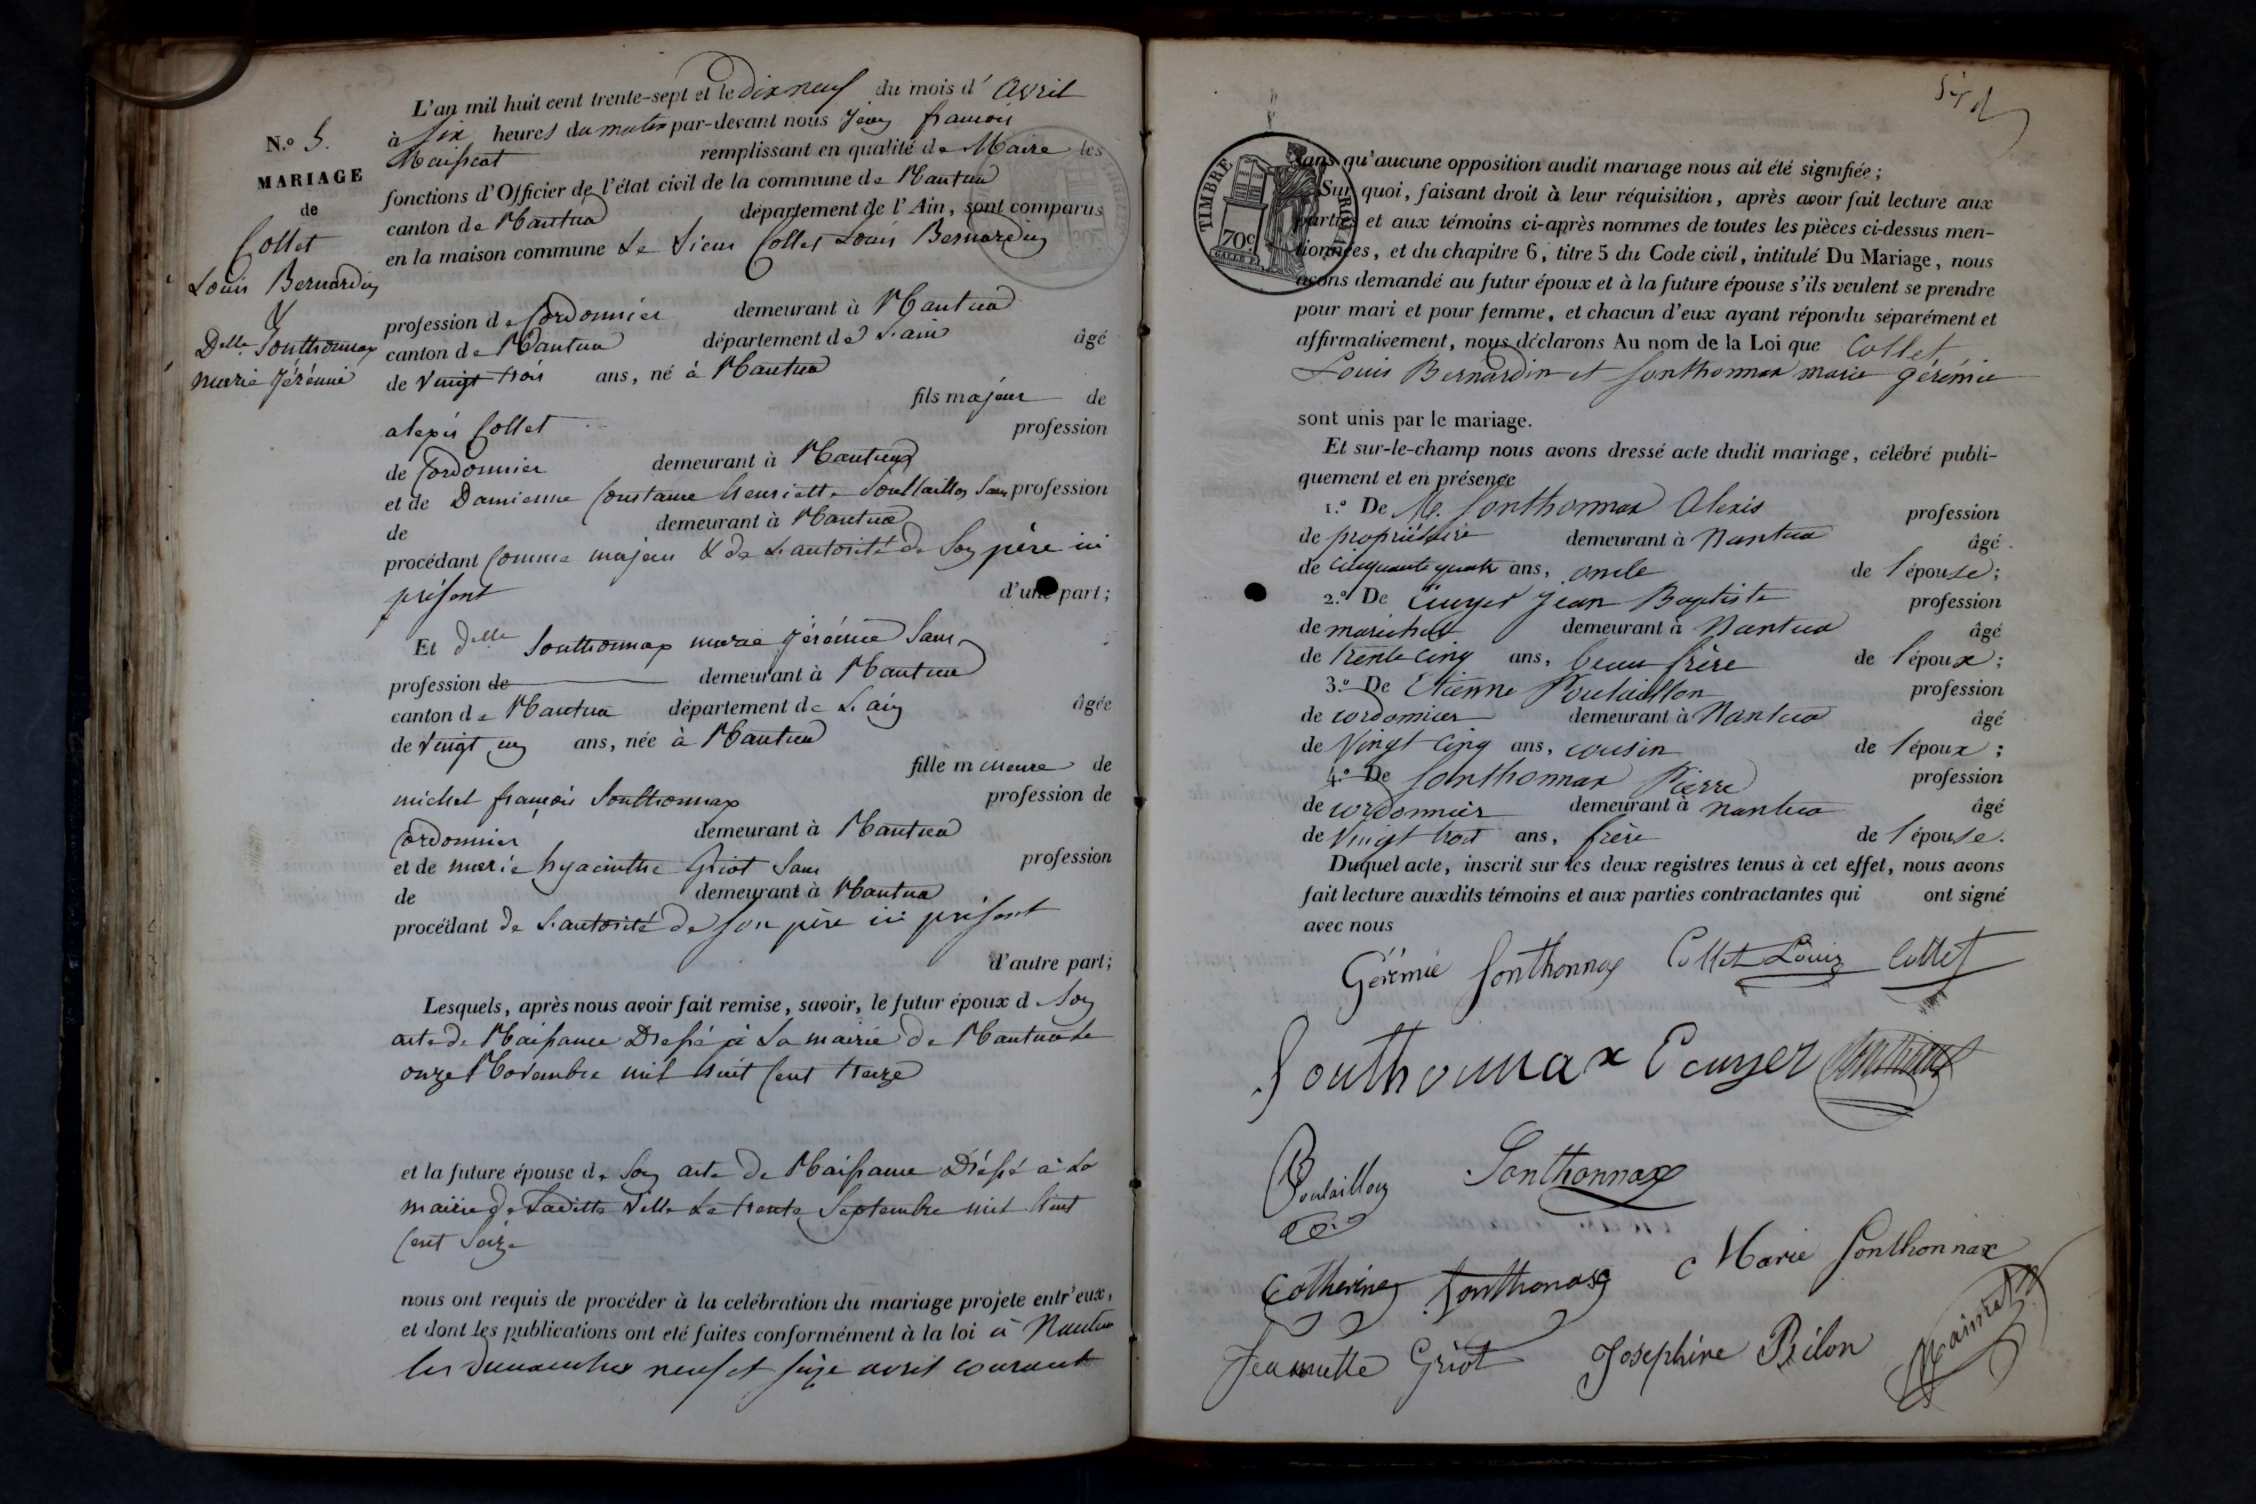 N.o 5.
MARIAGE
de
Collet
Louis Bernardin
&
Delle Sonthonnax
marie jérémie
L'an mil huit cent trente-sept et le dix neuf du mois d' avril
à six heures du matin par-devant nous jean françois
Maissiat remplissant en qualité de Maire les
fonctions d'Officier de l'état civil de la commune de Nantua
canton de Nantua département de l'Ain, sont comparus
en la maison commune Le Sieur Collet Louis Bernardin
profession de Cordonnier demeurant à Nantua
canton de Nantua département de L'ain âgé
de vingt trois ans, né à Nantua
fils majeur de
alexis Collet profession
de Cordonnier demeurant à Nantua
et de Damienne Constance henriette Poullaillon Sans profession
de demeurant à Nantua
procédant Comme majeur & de L'autorité de Son père ici
présent d'une part;
Et delle Sonthonnax marie jérémie Sans
profession de demeurant à Nantua
canton de Nantua département de L'ain âgée
de vingt un ans, née à Nantua
fille mineure de
michel françois Sonthonnax profession de
Cordonnier demeurant à Nantua
et de marie hyacinthe Griot Sans profession
de demeurant à Nantua
procédant de L'autorité de son père ici présent
d'autre part;
Lesquels, après nous avoir fait remise, savoir, le futur époux d Son
acte de Naissance Dressé à La mairie de Nantua Le
onze Novembre mil huit Cent treize
et la future épouse de Son acte de Naissance Dressé à La
mairie de Laditte Ville Le trente Septembre mil huit
Cent Seize
nous ont requis de procéder à la celébration du mariage projete entr'eux,
et dont les publications ont eté faites conformément à la loi à Nantua
les dimanches neuf et seize avril courant
TIMBRE ROYAL
70c
sans qu'aucune opposition audit mariage nous ait été signifiée;
Sur quoi, faisant droit à leur réquisition, après avoir fait lecture aux
parties et aux témoins ci-après nommes de toutes les pièces ci-dessus men-
tionnées, et du chapitre 6, titre 5 du Code civil, intitulé Du Mariage, nous
avons demandé au futur époux et à la future épouse s'ils veulent se prendre
pour mari et pour femme, et chacun d'eux ayant répondu séparément et
affirmativement, nous déclarons Au nom de la Loi que Collet
Louis Bernardin et Sonthonnax marie gérémie
sont unis par le mariage.
Et sur-le-champ nous avons dressé acte dudit mariage, célébré publi-
quement et en présence
1.o De M. Sonthonnax Alexis profession
de propriétaire demeurant à Nantua âgé
de Cinquante quatre ans, oncle de l'épouse;
2.o De Ecuyer Jean Baptiste profession
de maréchal demeurant à Nantua âgé
de trente cinq ans, beau frère de l'époux;
3.o De Etienne Poulaillon profession
de cordonnier demeurant à Nantua âgé
de Vingt cinq ans, cousin de l'époux;
4.o De Sonthonnax Pierre profession
de cordonnier demeurant à nantua âgé
de Vingt trois ans, frère de l'épouse.
Duquel acte, inscrit sur les deux registres tenus à cet effet, nous avons
fait lecture auxdits témoins et aux parties contractantes qui ont signé
avec nous
Gérémie Sonthonnax Collet Louis Collet
Sonthonnax Ecuyer
Poulaillon Sonthonnax
Catherine Sonthonax Marie Sonthonnax
Jeannette Griot Josephine Pilon